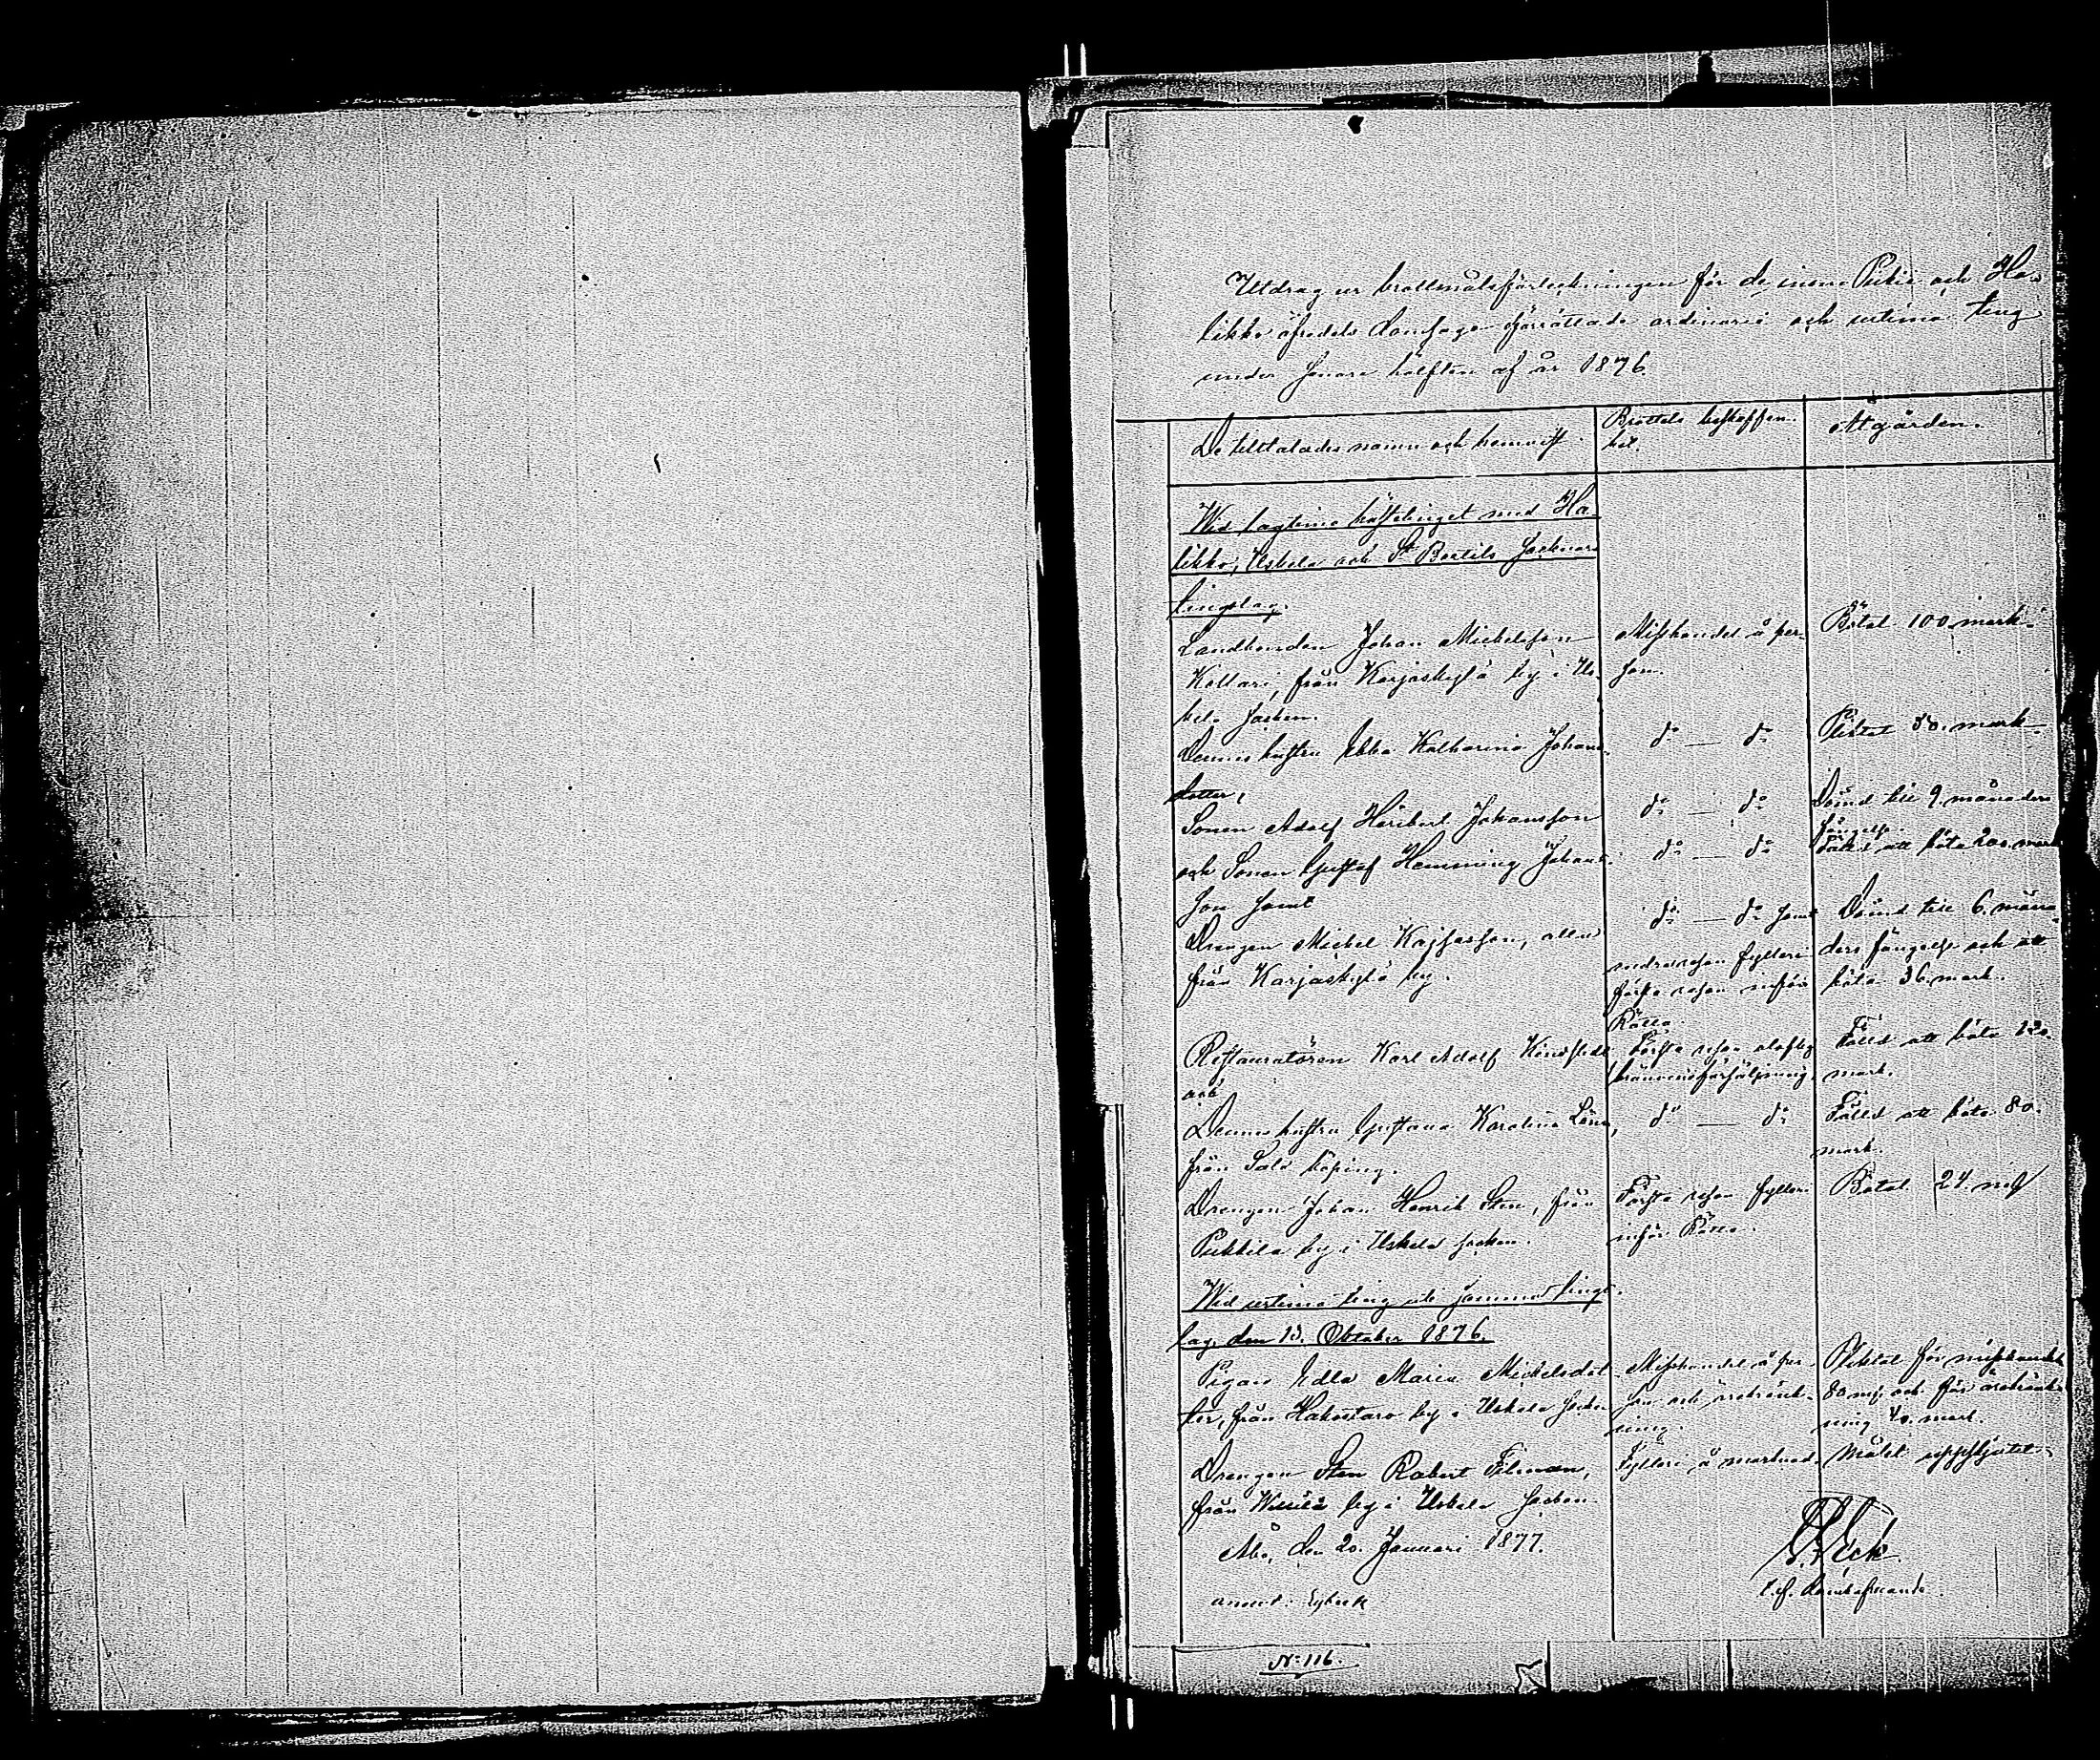 Utdrag ur brottmålsförteckningen för de inom Pikis och Ha-
likko häradets domsaga förrättade ordinarie och urtima ting
under senare hälften af år 1876.
De tilltalades namn och hemvist.
Brottets beskaffen-
het.
Åtgärden.
Wid lagtima hösttinget med Ha-
likko, Uskela och St Bertils socknars
tingslag.
Landbonden Johan Michelsson
Kollari, från Karjaskylä by i Us-
kela socken.
Misshandel å per-
son.
Bötat 100 mark.
Dennes hustru Ebba Katharina Johans-
dotter,
do — do
Pliktat 50. mark.
Sonen Adolf Heribert Johansson
do — do
Dömd till 9. månaders
fängelse.
och Sonen Gustaf Hemming Johans-
son samt
do — do
Fälld att böta 200. mark
Drengen Michel Kajsasson, alla
från Karjaskylä by.
do — do samt
andra resan fylleri
första resan inför
Rätta.
Dömd till 6. måna-
ders fängelse och att
böta 36. mark.
Restauratören Karl Adolf
och
Första resan olaflig
bränvinsförsäljning.
Fälld att böta 120.
mark.
Dennes hustru Gustava Karolina
från Salo köping.
do — do
Fälld att böta 80.
mark.
Drengen Johan Henrik Sten, från
Pukkila by i Uskela socken.
Första resan fylleri
inför Rätta.
Bötat 24. mk
Wid urtima ting uti samma tings-
lag den 13. Oktober 1876.
Pigan Edla Maria Michelsdot-
ter, från Hakostaro by i Uskela socken
Misshandel å per-
son och ärekränk-
ning.
Pliktat för misshandel
80 mk, och för ärekränk-
ning 40. mark.
Drengen Sten Robert Filman,
från by i Uskela socken.
Fylleri å marknad.
Målet uppskjutet.
Åbo, den 20. Januari 1877.
Eck
t.f. domhafvande.
No 116.